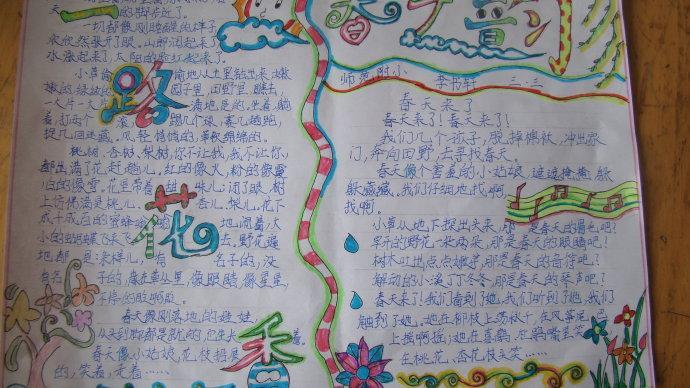 的脚步近了。
一切都像刚睡醒的样子
欣欣然张开了眼。山朗润起来了
水涨起来了，太阳的脸红起来了。
小草偷偷地从土里钻出来，嫩
嫩的，绿绿的。园子里，田野里，瞧去，
一大片一大片满地是的。坐着，躺
着，打两个滚，踢几脚球，赛几趟跑，
捉几回迷藏。风轻悄悄的，草软绵绵的。
桃树、杏树、梨树，你不让我，我不让你，
都开满了花赶趟儿。红的像火，粉的像霞，
白的像雪。花里带着甜味儿；闭了眼，树
上仿佛满是桃儿、杏儿、梨儿。花下
成千成百的蜜蜂嗡嗡地闹着，大
小的蝴蝶飞来飞去。野花遍
地都是：杂样儿，有名字的，没
名字的，像在草丛里，像眼睛，像星星，
春天像刚落地的娃娃，
从头到脚都是新的，它生长着。
春天像小姑娘，花枝招展
的，笑着，走着……
春 章
师范附小 李书轩 三·三
春天来了
春天来了！春天来了！
我们几个孩子，脱掉棉袄，冲出家
门，奔向田野，去寻找春天。
春天像个害羞的小姑娘，遮遮掩掩，躲
躲藏藏。我们仔细地找啊，
找啊。
小草从地下探出头来，那是春天的眉毛吧？
早开的野花一朵两朵，那是春天的眼睛吧？
树木吐出点点嫩芽，那是春天的音符吧？
解冻的小溪丁丁冬冬，那是春天的琴声吧？
春天来了！我们看到了她，我们听到了她，我们
触到了她。她在柳枝上荡秋千，在风筝尾巴
上摇啊摇；她在喜鹊、杜鹃嘴里叫，
在桃花、杏花枝头笑……